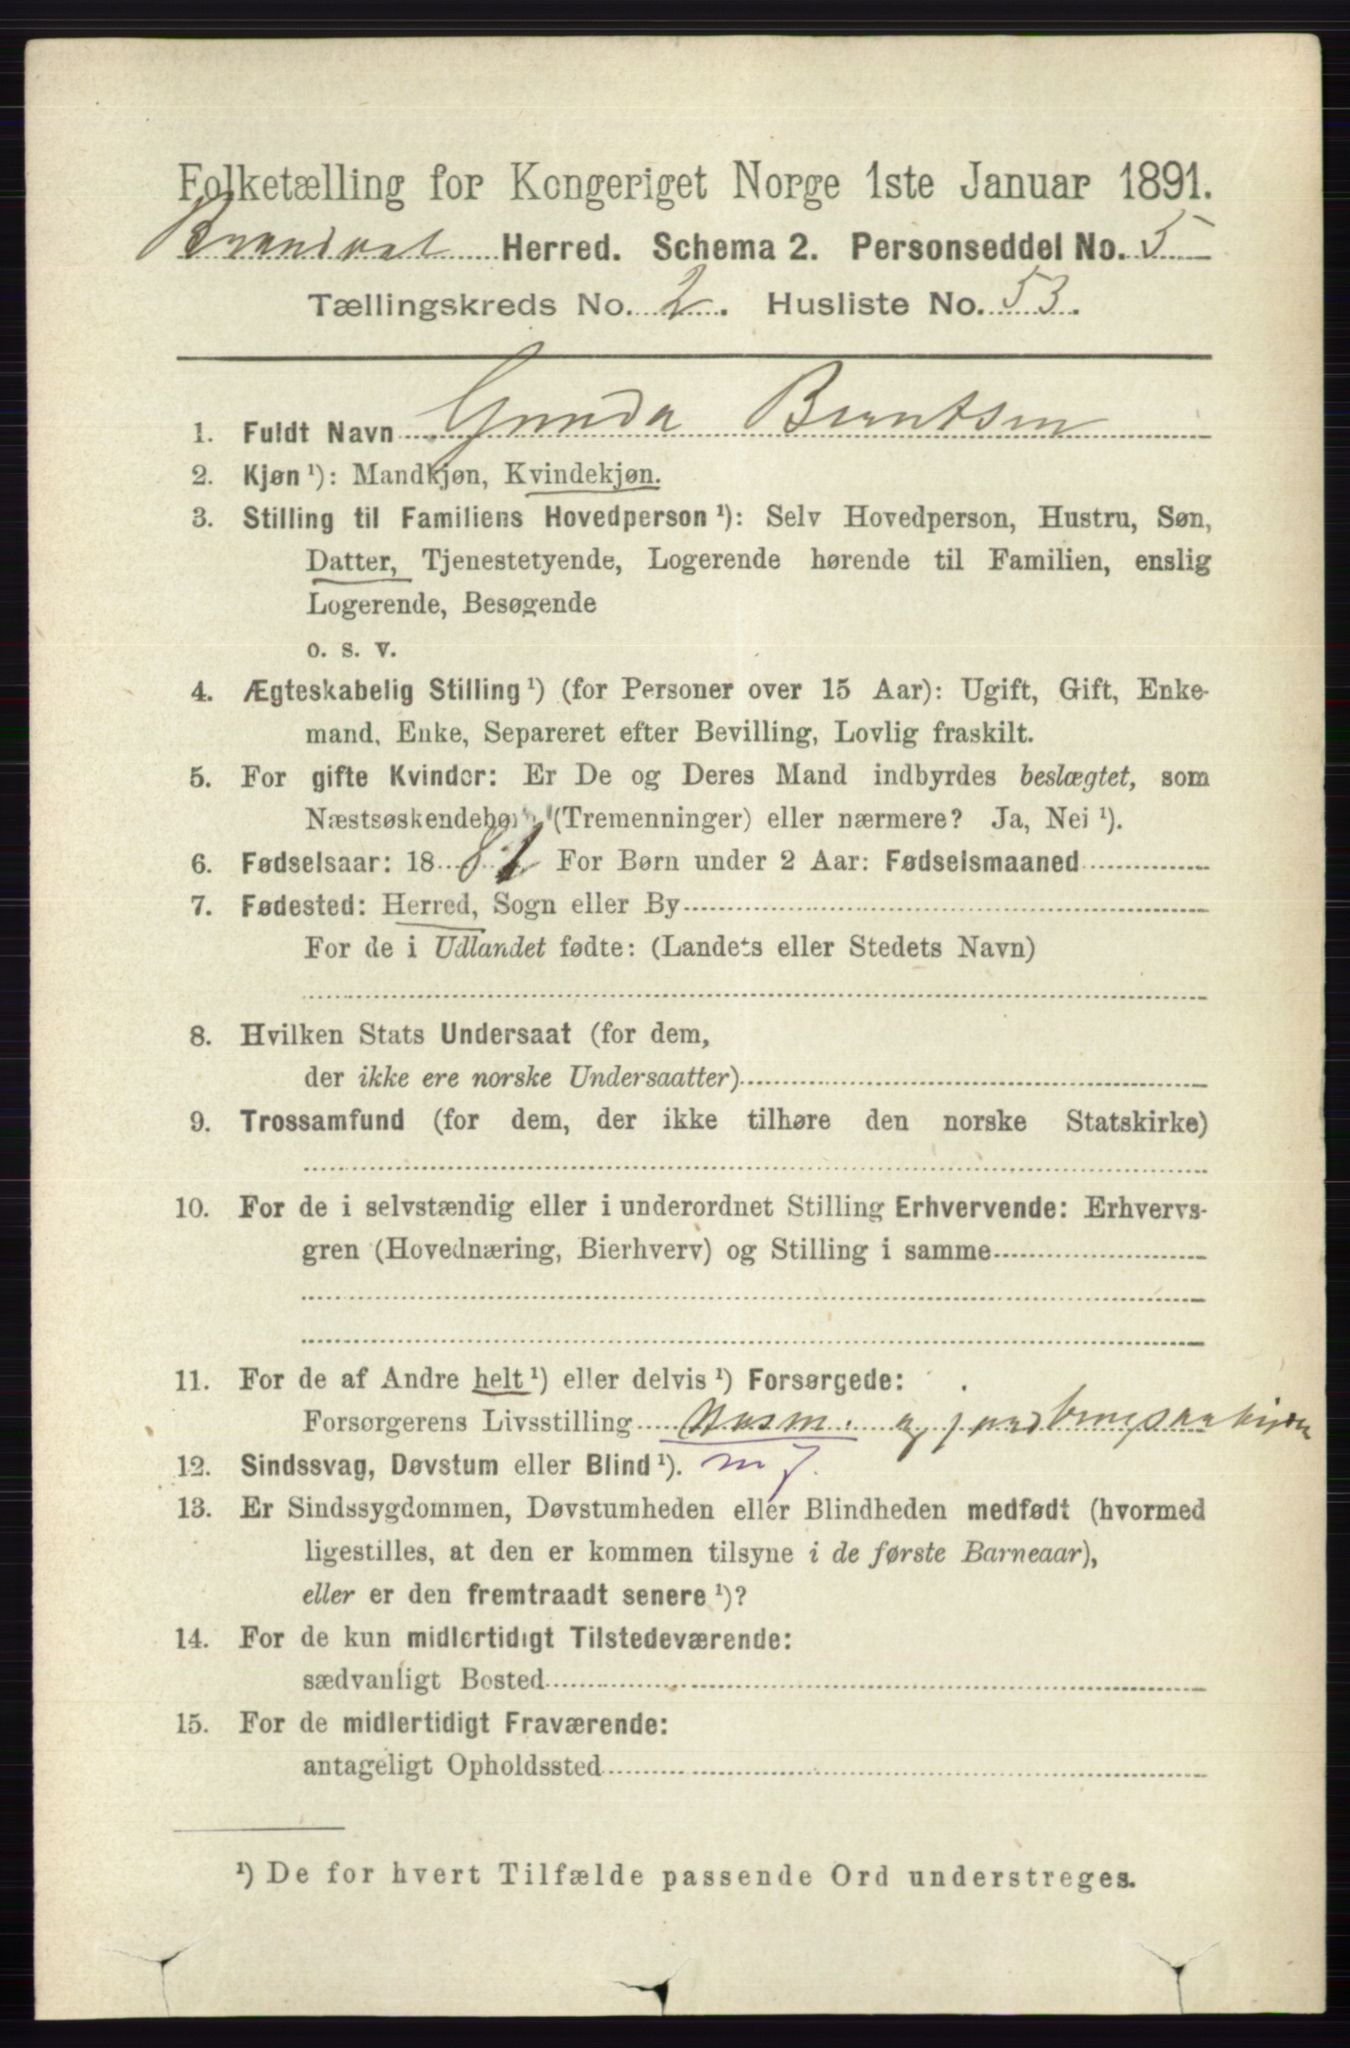 Folketælling for Kongeriget Norge 1ste Januar 1891.
Brandval Herred. Schema 2. Personseddel No. 5
Tællingskreds No. 2. Husliste No. 53.
1. Fuldt Navn Gunda Berntsen
2. Kjøn ¹): Mandkjøn, Kvindekjøn.
3. Stilling til Familiens Hovedperson ¹): Selv Hovedperson, Hustru, Søn,
Datter, Tjenestetyende, Logerende hørende til Familien, enslig
Logerende, Besøgende
o. s. v.
4. Ægteskabelig Stilling ¹) (for Personer over 15 Aar): Ugift, Gift, Enke-
mand, Enke, Separeret efter Bevilling, Lovlig fraskilt.
5. For gifte Kvinder: Er De og Deres Mand indbyrdes beslægtet, som
Næstsøskendebørn (Tremenninger) eller nærmere? Ja, Nei ¹).
6. Fødselsaar: 18 81 For Børn under 2 Aar: Fødselsmaaned
7. Fødested: Herred, Sogn eller By
For de i Udlandet fødte: (Landets eller Stedets Navn)
8. Hvilken Stats Undersaat (for dem,
der ikke ere norske Undersaatter)
9. Trossamfund (for dem, der ikke tilhøre den norske Statskirke)
10. For de i selvstændig eller i underordnet Stilling Erhvervende: Erhvervs-
gren (Hovednæring, Bierhverv) og Stilling i samme
11. For de af Andre helt ¹) eller delvis ¹) Forsørgede:
Forsørgerens Livsstilling Husm. og
12. Sindssvag, Døvstum eller Blind ¹). m j.
13. Er Sindssygdommen, Døvstumheden eller Blindheden medfødt (hvormed
ligestilles, at den er kommen tilsyne i de første Barneaar),
eller er den fremtraadt senere ¹)?
14. For de kun midlertidigt Tilstedeværende:
sædvanligt Bosted
15. For de midlertidigt Fraværende:
antageligt Opholdssted
¹) De for hvert Tilfælde passende Ord understreges.